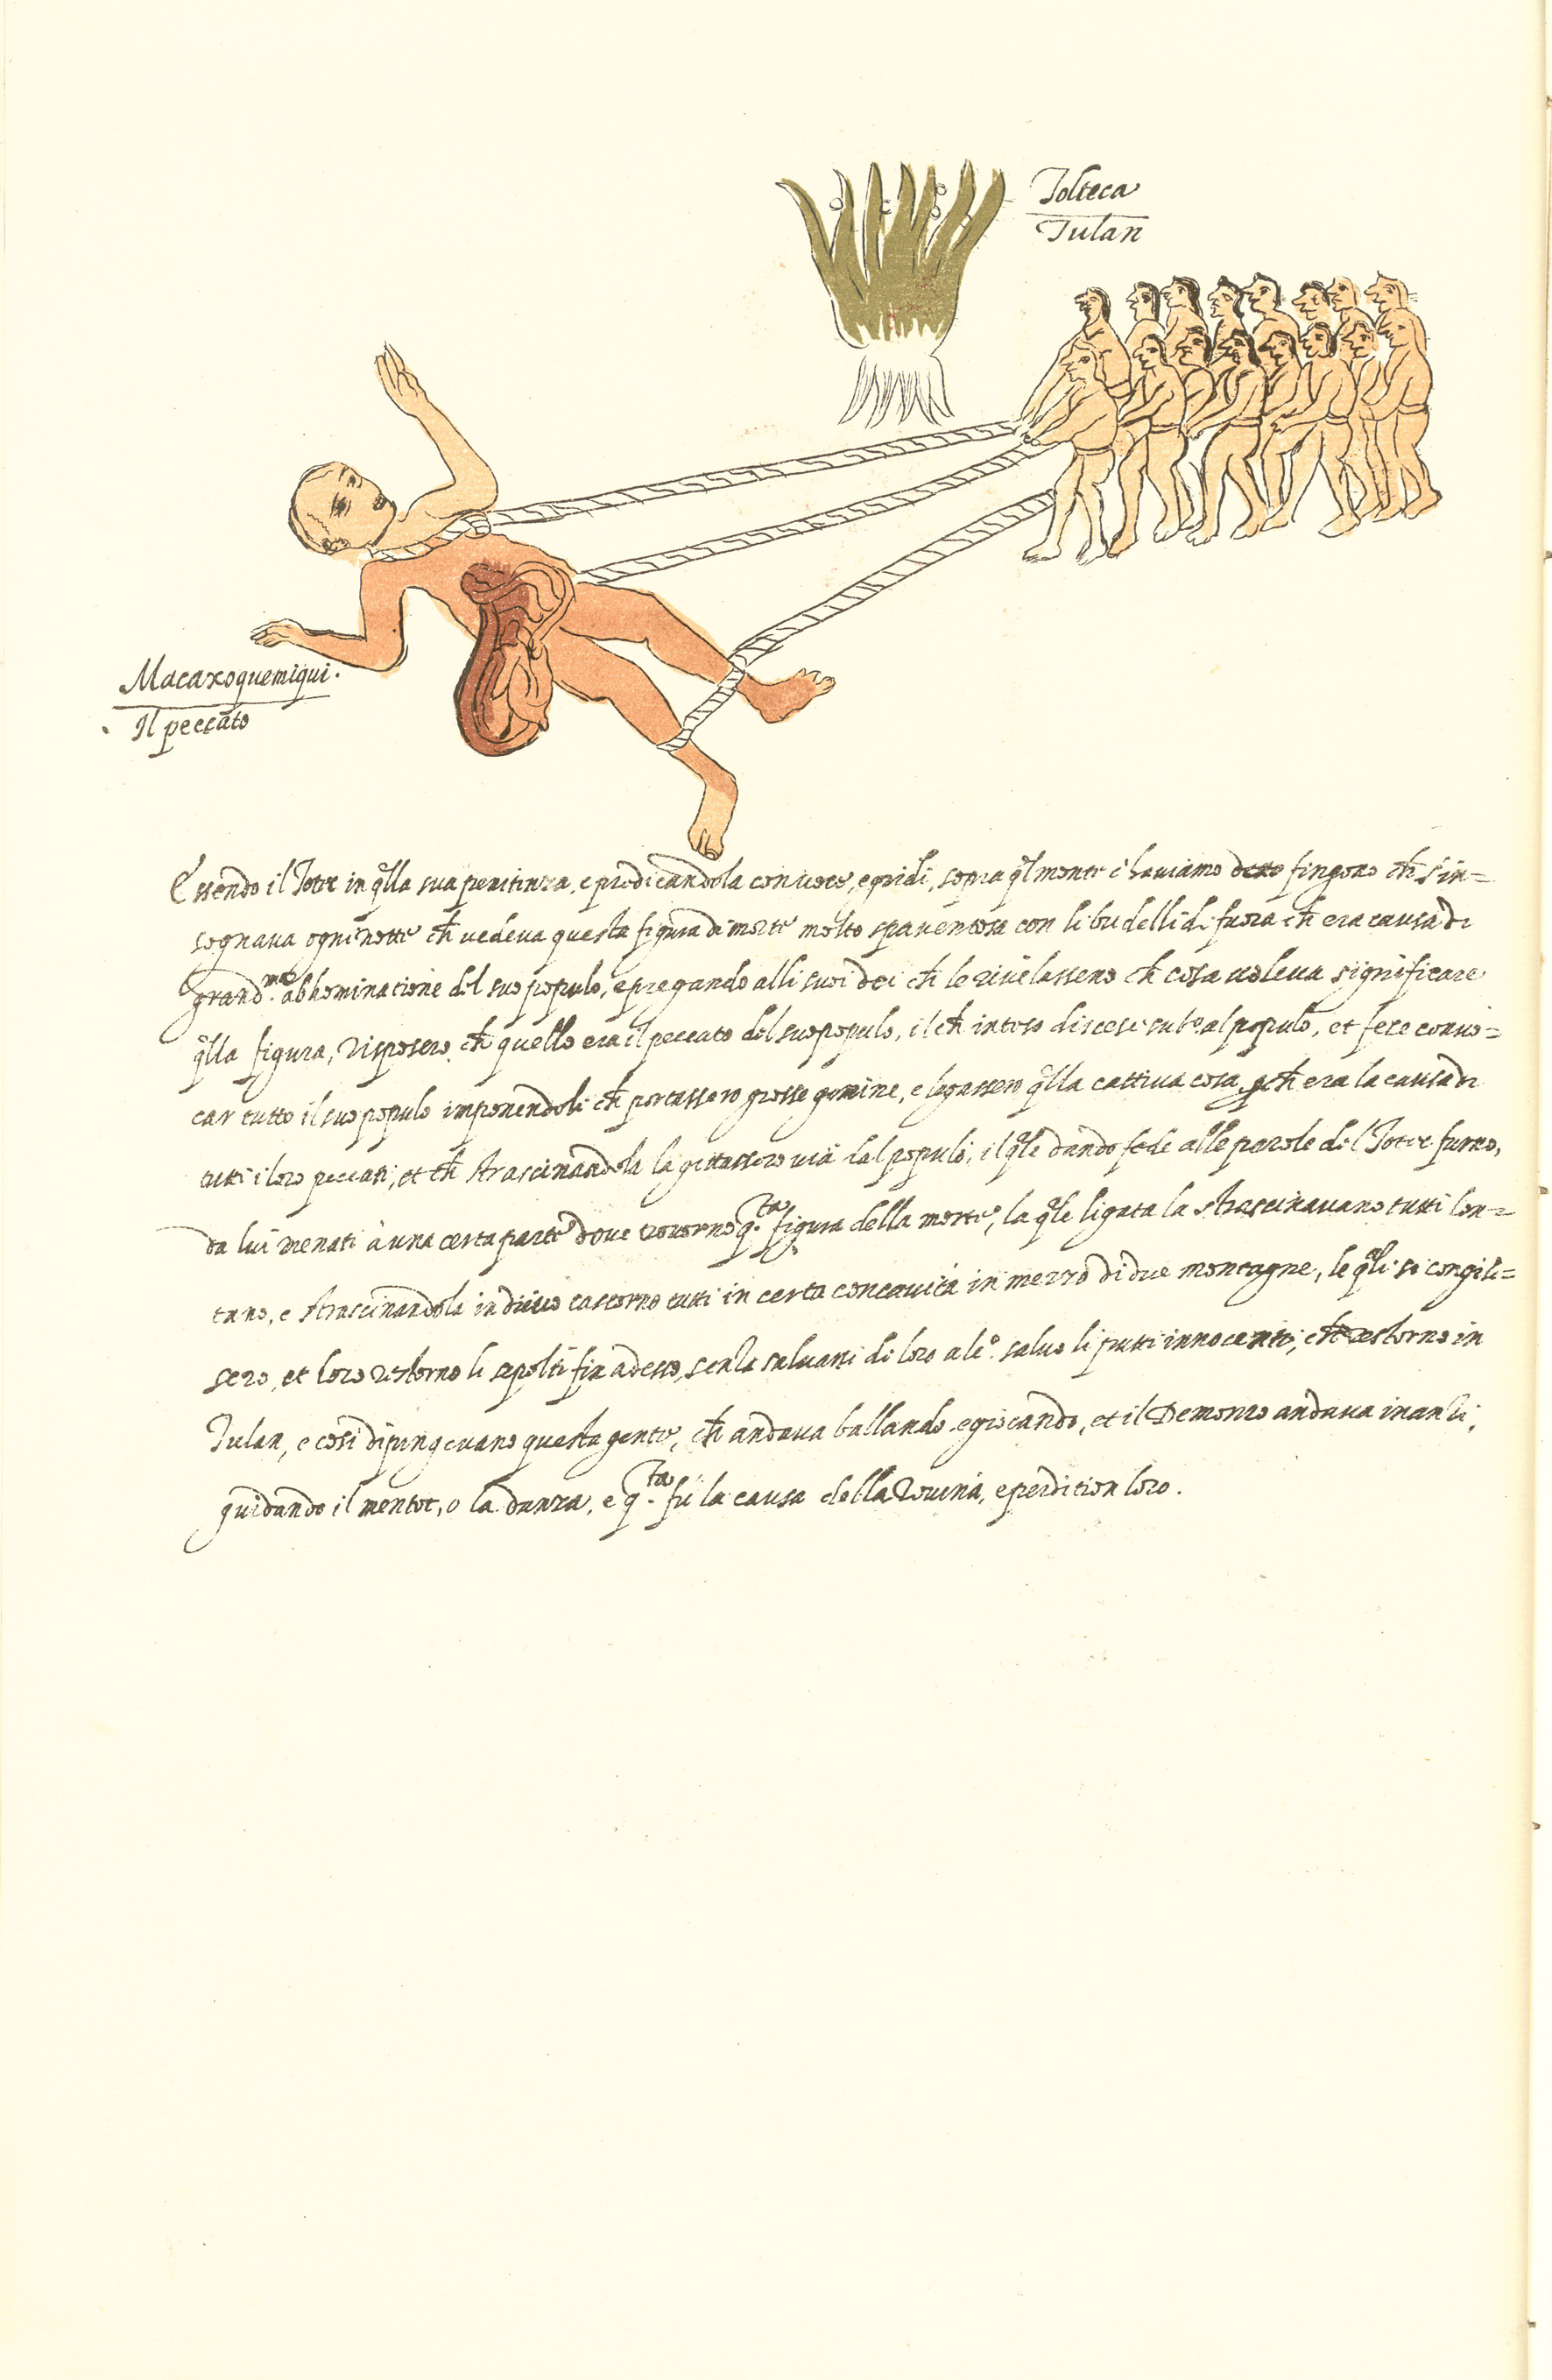 Tolteca
Tulan
Macaxoquemiqui.
Il peccato
Essendo il Totec in q̃lla sua penitenza, e predicandola con uoce, e gridi, sopra q̃l monte c'haviamo detto fingono ch̃ s'in=
sognaua ogni notte ch̃ uedeua questa figura di morte molto spauentosa con li budelli di fuora ch̃ era causa di
grand.ma abhominatione del suo populo, e pregando alli suoi dei ch̃ le riuelasseno ch̃ cosa uoleua significare
q̃lla figura, risposero ch̃ quello era il peccato del suo populo, il ch̃ inteso discese sub.o al populo, et fece conuo=
car tutto il suo populo imponendoli ch̃ portassero grosse gomine, e legassero q̃lla cattiua cosa p̃ch̃ era la causa di
tutti i loro peccati, et ch̃ strascinandola la gettassero uia dal populo, il q̃le dando fede alle parole del Totec furno,
da lui menati à una certa parte doue trouorno q.ta figura della morte, la q̃le ligata la strascinauano tutti lon=
tano, e strascinandola indrieto cascorno tutti in certa concauità in mezzo di due montagne, le q̃li si congili=
sero, et loro restorno li sepolti fin adesso, senza saluarsi di loro alc.o saluo li putti innocenti, ch̃ restorno in
Tulan, e così dipingeuano questa gente, ch̃ andaua ballando e giocando, et il Demonio andaua inanzi,
guidando il mentoc, o la danza, e q.ta fù la causa della Rouina, e perdition loro.